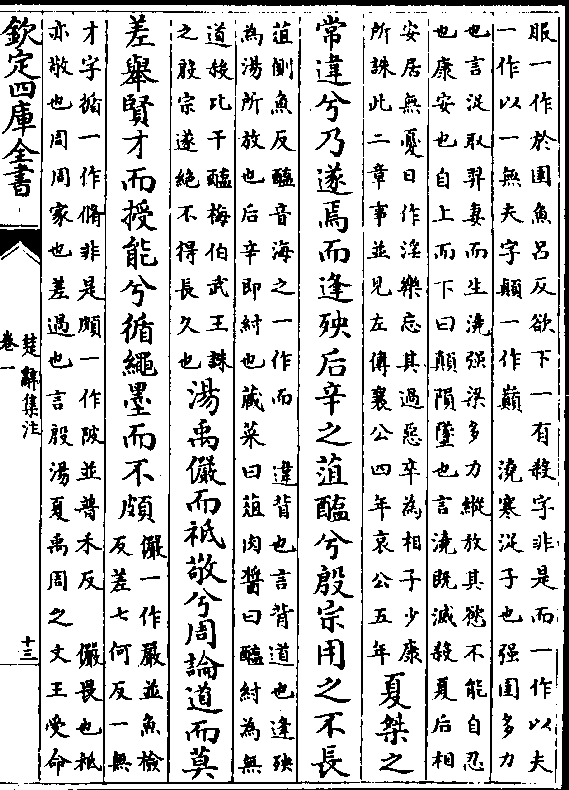 服一作於圉魚呂反欲下一有殺字非是而一作以夫
一作以一無夫字顛一作巔　澆寒浞子也强圉多力
也言浞取羿妻而生澆强梁多力縱放其慾不能自忍
也康安也自上而下曰顛隕墜也言澆既滅殺夏后相
安居無憂日作淫樂忘其過惡卒為相子少康
所誅此二章事並見左傳襄公四年哀公五年
夏桀之
常違兮乃遂焉而逢殃后辛之菹醢兮殷宗用之不長
菹側魚反醢音海之一作而　違背也言背道也逢殃
為湯所放也后辛即紂也藏菜曰葅肉醬曰醢紂為無
道殺比干醢梅伯武王誅
之殷宗遂絶不得長久也
湯禹儼而祗敬兮周論道而莫
差舉賢才而授能兮循繩墨而不頗
儼一作嚴並魚檢
反差七何反一無
才字循一作脩非是頗一作陂並普禾反　儼畏也祗
亦敬也周周家也差過也言殷湯夏禹周之文王受命
欽定四庫全書
楚辭集注
卷一
十三